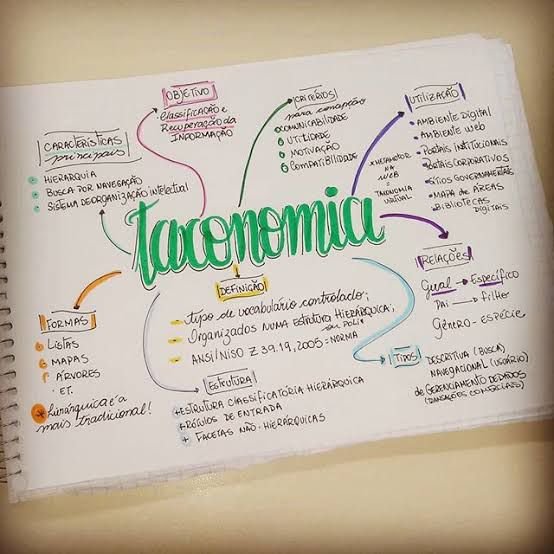 taxonomia
OBJETIVO
Classificação e
Recuperação da
INFORMAÇÃO
CRITÉRIOS
para concepção
COMUNICABILIDADE
UTILIDADE
MOTIVAÇÃO
COMPATIBILIDADE
UTILIZAÇÃO
AMBIENTE DIGITAL
AMBIENTE WEB
PORTAIS INSTITUCIONAIS
PORTAIS CORPORATIVOS
SÍTIOS GOVERNAMENTAIS
MAPA DE ÁREAS
BIBLIOTECAS
DIGITAIS
NA
WEB =
TAXONOMIA
CARACTERÍSTICAS
principais
HIERARQUIA
BUSCA POR NAVEGAÇÃO
SISTEMA DE ORGANIZAÇÃO INTELECTUAL
RELAÇÕES
Geral → Específico
Pai → filho
GÊNERO - ESPÉCIE
DEFINIÇÃO
tipo de vocabulário controlado;
ORGANIZADOS NUMA ESTRUTURA HIERÁRQUICA,
ou POLI
ANSI/NISO Z 39.19, 2005 = NORMA
FORMAS
LISTAS
MAPAS
ÁRVORES
ET.
hierárquica é a
mais tradicional!
ESTRUTURA
+ ESTRUTURA CLASSIFICATÓRIA HIERÁRQUICA
+ RÓTULOS DE ENTRADA
+ FACETAS NÃO-HIERÁRQUICAS
TIPOS
DESCRITIVA (BUSCA)
NAVEGACIONAL (USUÁRIO)
de GERENCIAMENTO DE DADOS
(TRANSAÇÕES COMERCIAIS)